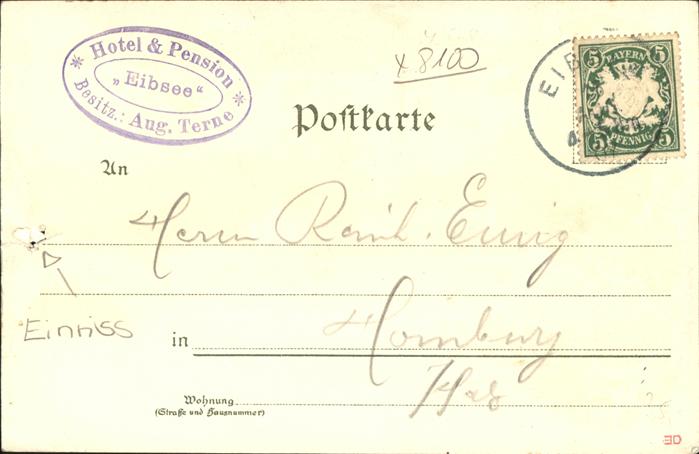 * Hotel & Pension *
„Eibsee“
Besitz.: Aug. Terne
x 8100
EIB
5 BAYERN 5
5 PFENNIG 5
Postkarte
An
Herrn Reinh.
Einriss
in Homburg
Wohnung
(Straße und Hausnummer)